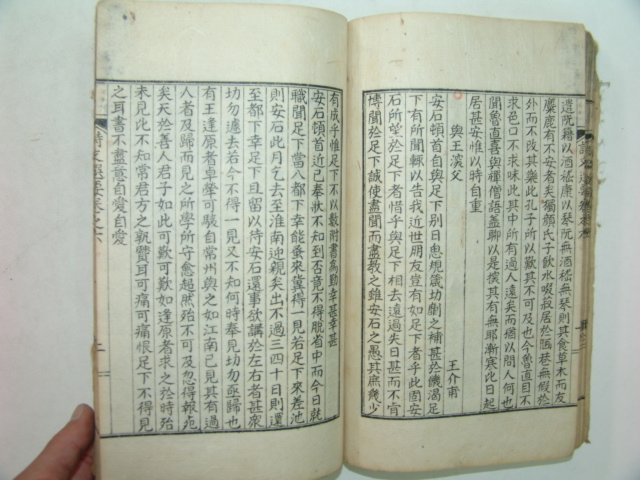 遣阮籍以酒嵇康以琴阮無酒嵇無琴則其食草木而友
麋鹿有不安者矣獨顔氏子飲水啜菽居於陋巷無假於
外而不改其樂此孔子所以歎其不可及也今魯直目不
求色口不求味此其中所有過人遠矣而猶以問人何也
聞魯直喜與禪僧語蓋聊以是探其有無耶漸寒比日起
居甚安惟以時自重
與王深父
王介甫
安石頓首自與足下別日思規箴切劘之補甚於饑渴足
下有所聞輒以告我近世朋友豈有如足下者乎此固安
石所望於足下者惜乎與足下相去遠過失日甚而不肯
愽聞於足下誠使盡聞而盡教之雖安石之愚其庶幾少
有成乎惟足下不以數附書爲勤幸甚幸甚
安石頓首近已奉狀不知到否竟不得脫省中而今日就
職聞足下當八都下幸能蚤來冀得一見若足下來差池
則安石此月乞去至淮南迎親矣出不過三四十日則還
至都下幸足下且留以待安石還事欲講於左右者甚衆
切勿遽去若今不得一見又不知何時奉見切勿亟歸也
有王逢原者卓犖可駿自常州與之如江南已見其有過
人者及歸而見之所學所守愈超然殆不可及忽得報死
矣天於善人君子如此可歎可歎如逢原者求之於時殆
未見比不知常君方之孰賢耳可痛可痛恨足下不得見
之耳書不盡意自愛自愛
詩文選要卷之六
二